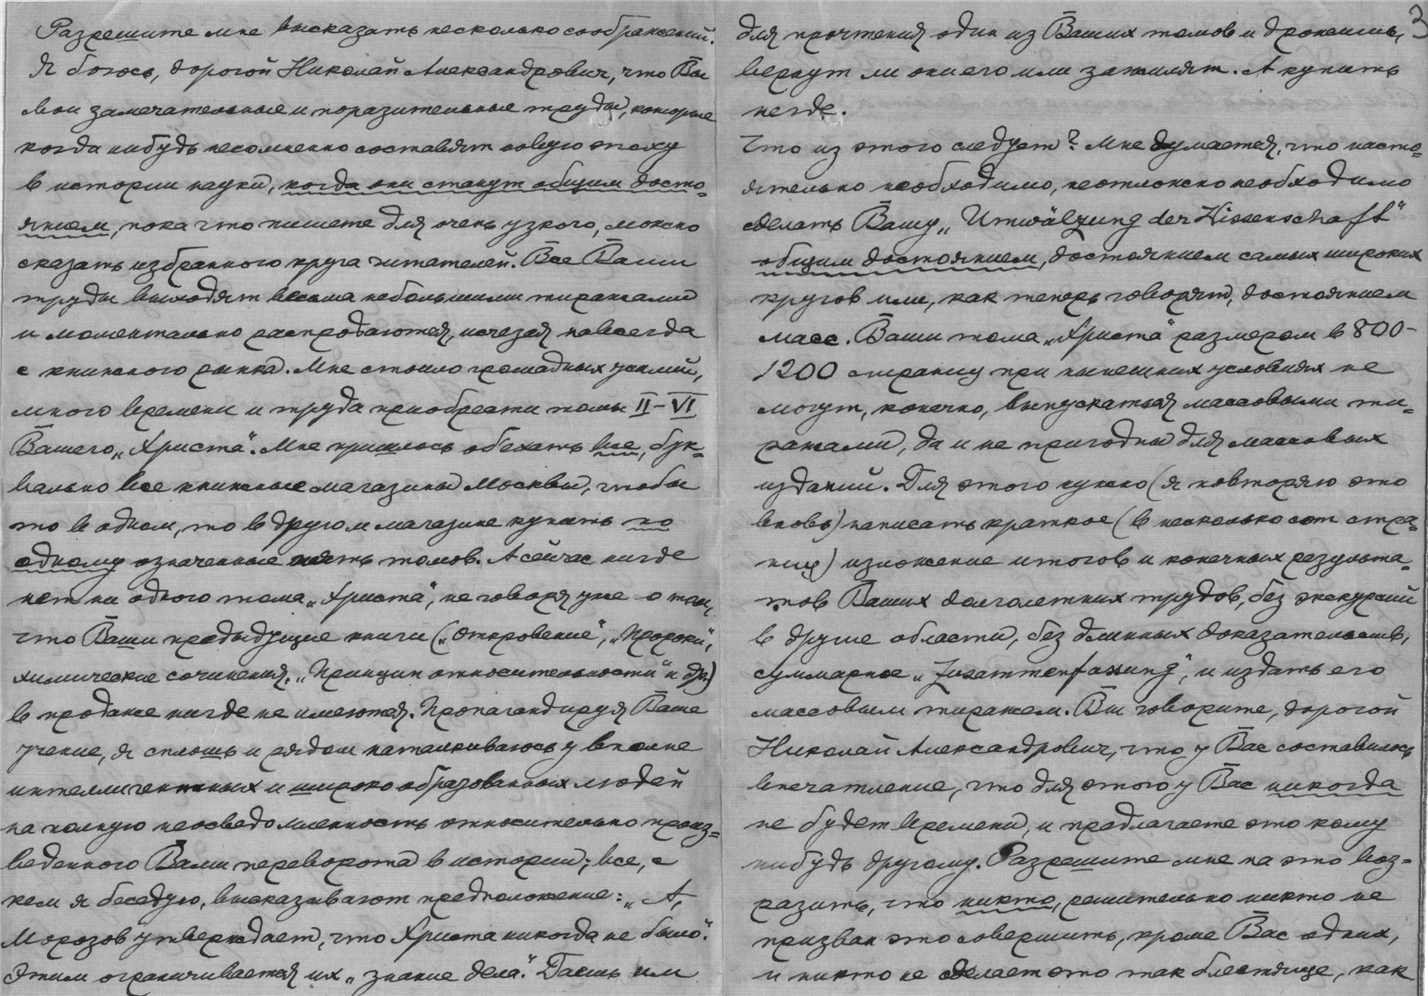 Разрешите мне высказать несколько соображений.
Я боюсь, дорогой Николай Александрович, что Ва-
ши замечательные и поразительные труды, которые
когда нибудь несомненно составят новую эпоху
в истории науки, когда они станут общим досто-
янием, пока что пишете для очень узкого, можно
сказать избранного круга читателей. Все Ваши
труды выходят весьма небольшими тиражами
и моментально распродаются, исчезая навсегда
с книжного рынка. Мне стоило громадных усилий,
много времени и труда приобрести томы II–VI
Вашего „Христа“. Мне пришлось объехать все, бук-
вально все книжные магазины Москвы, чтобы
то в одном, то в другом магазине купить по
одному означенные пять томов. А сейчас нигде
нет ни одного тома „Христа“, не говоря уже о том,
что Ваши предыдущие книги („Откровение“, „Пророки“,
химические сочинения, „Принцип относительности“ и др.)
в продаже нигде не имеются. Пропагандируя Ваше
учение, я сплошь и рядом наталкиваюсь у вполне
интеллигентных и широко образованных людей
на полную неосведомленность относительно произ-
веденного Вами переворота в истории; все, с
кем я беседую, высказывают предположение: „А,
Морозов утверждает, что Христа никогда не было“.
Этим ограничивается их „знание дела“. Даешь им
3
для прочтения один из Ваших томов и дрожишь,
вернут ли они его или зажилят. А купить
негде.
Что из этого следует? Мне думается, что насто-
ятельно необходимо, неотложно необходимо
сделать Вашу „Umwälzung der Wissenschaft“
общим достоянием, достоянием самых широких
кругов или, как теперь говорят, достоянием
масс. Ваши тома „Христа“ размером в 800–
1200 страниц при нынешних условиях не
могут, конечно, выпускаться массовыми ти-
ражами, да и не пригодны для массовых
изданий. Для этого нужно (я повторяю это
вновь) написать краткое (в несколько сот стра-
ниц) изложение итогов и конечных результа-
тов Ваших долголетних трудов, без экскурсий
в другие области, без длинных доказательств,
суммарное „Zusammenfassung“, и издать его
массовым тиражем. Вы говорите, дорогой
Николай Александрович, что у Вас составилось
впечатление, что для этого у Вас никогда
не будет времени, и предлагаете это кому
нибудь другому. Разрешите мне на это воз-
разить, что никто, решительно никто не
призван это совершить, кроме Вас одних,
и никто не сделает это так блестяще, как